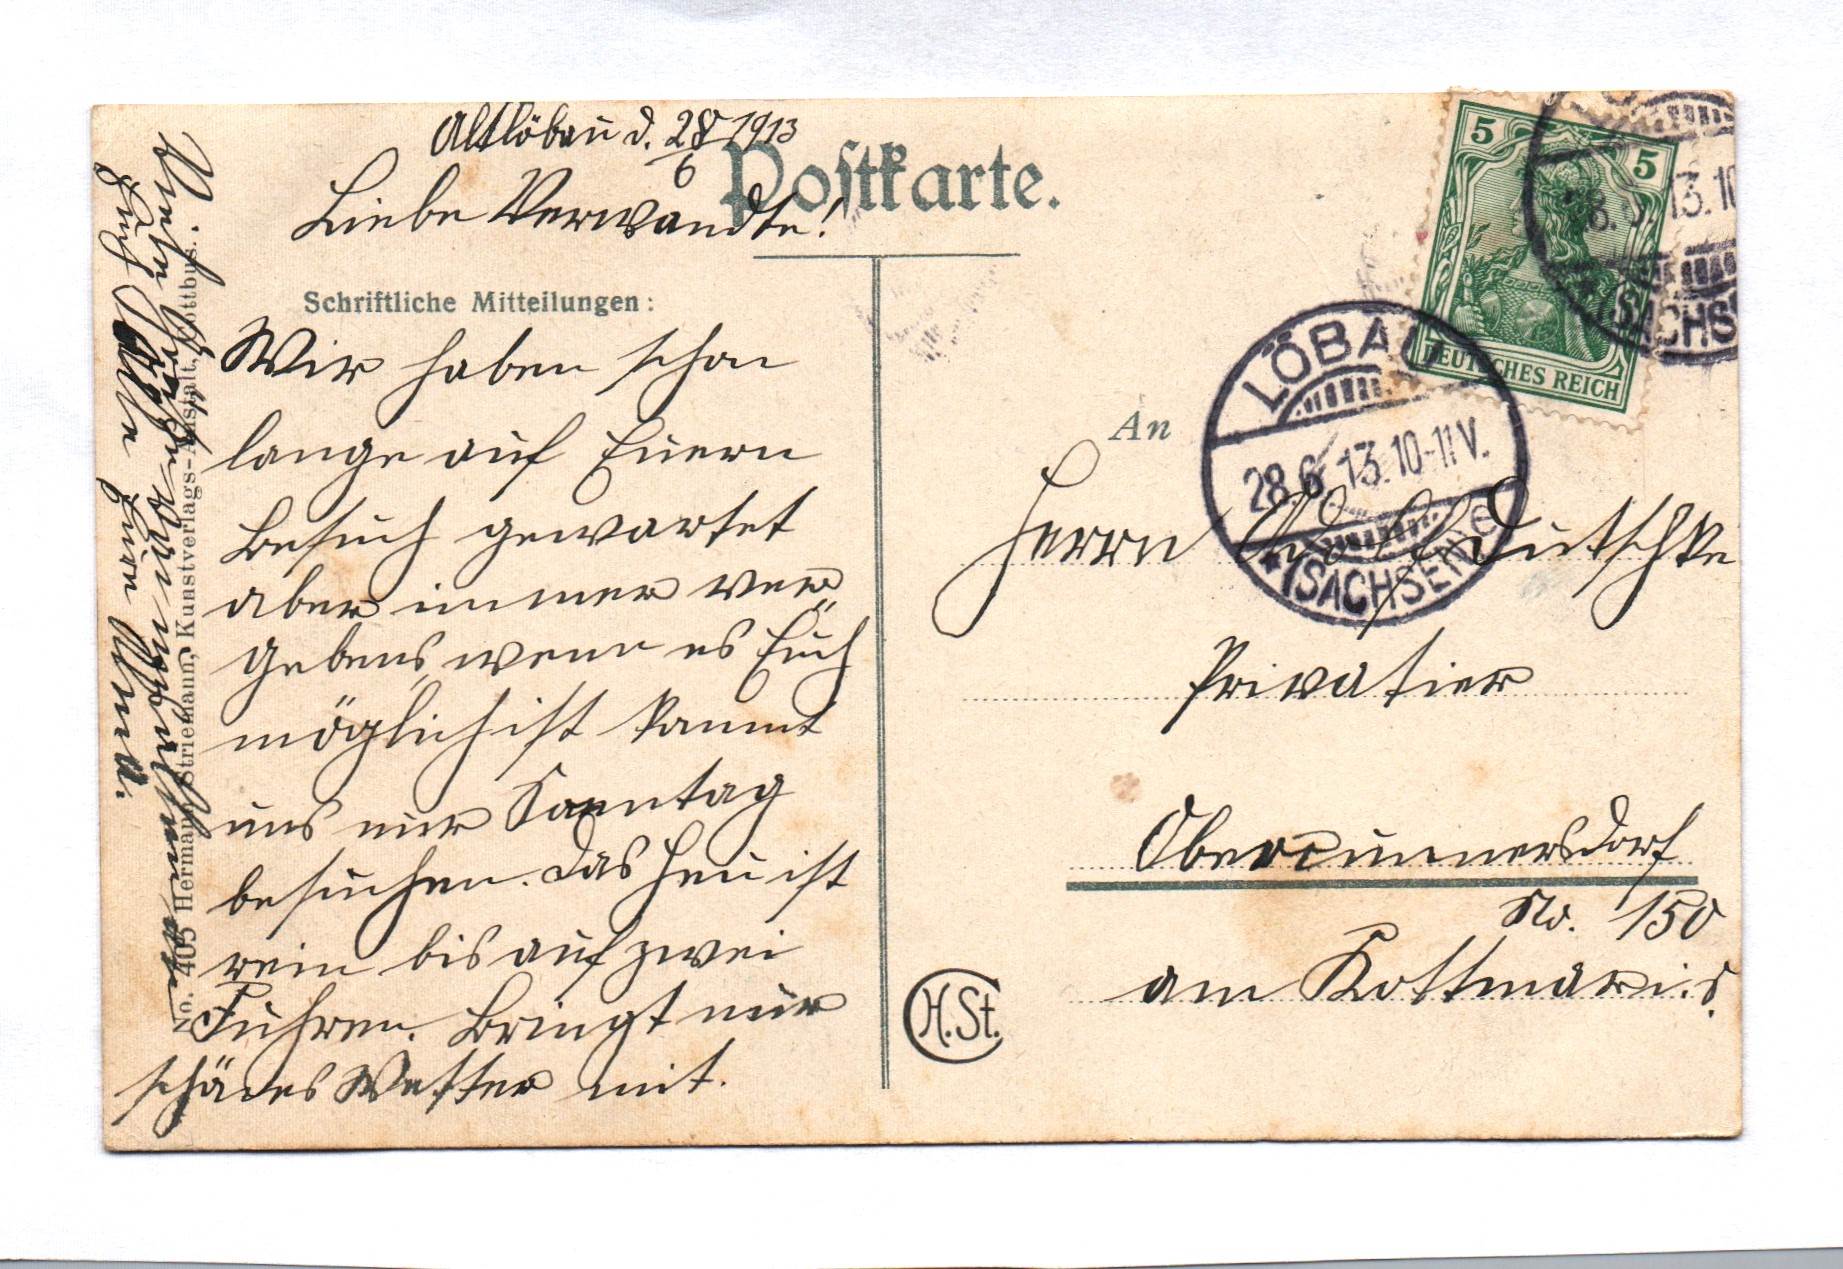 Altlöbau d. 28/6 1913
Postkarte.
Liebe Verwandte!
Schriftliche Mitteilungen:
Wir haben schon
lange auf Euern
Besuch gewartet
aber immer ver„
gebens, wenn es Euch
möglich ist kommt
uns nur Sonntag
besuchen. Das Heu ist
rein bis auf zwei
Fuhren. Bringt nur
schönes Wetter mit.
Viele Grüße
Euch Allen Eure Anna.
No. 405 Hermann Striemann, Kunstverlags-Anstalt, Cottbus.
5 5
DEUTSCHES REICH
SACHS
LÖBAU
28.6.13.10-11V.
(SACHSEN) c
An
Herrn Adolf Dutschke
Privatier
Obercunnersdorf
No. 150
am Kottmar i. S.
H.St.